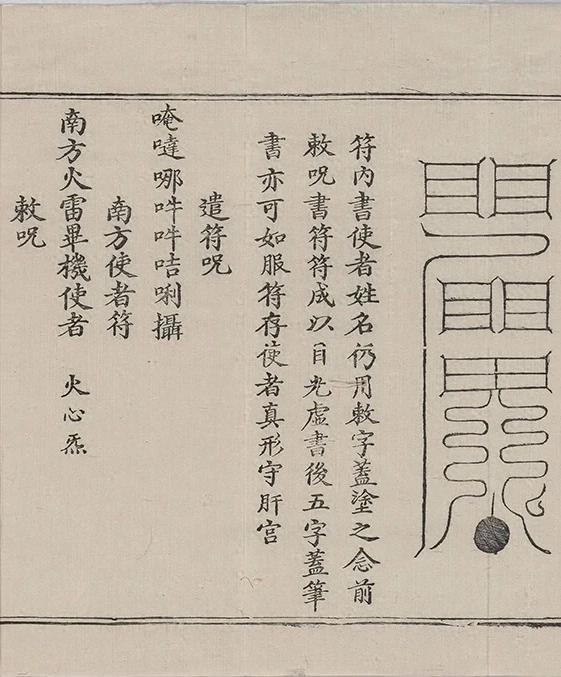 符內書使者姓名仍用敕字蓋塗之念前
敕咒書符符成以目光虛書後五字蓋筆
書亦可如服符存使者真形守肝宮
遣符咒
唵噠哪吽吽咭唎攝
南方使者符
南方火雷畢機使者　火心炁
敕咒